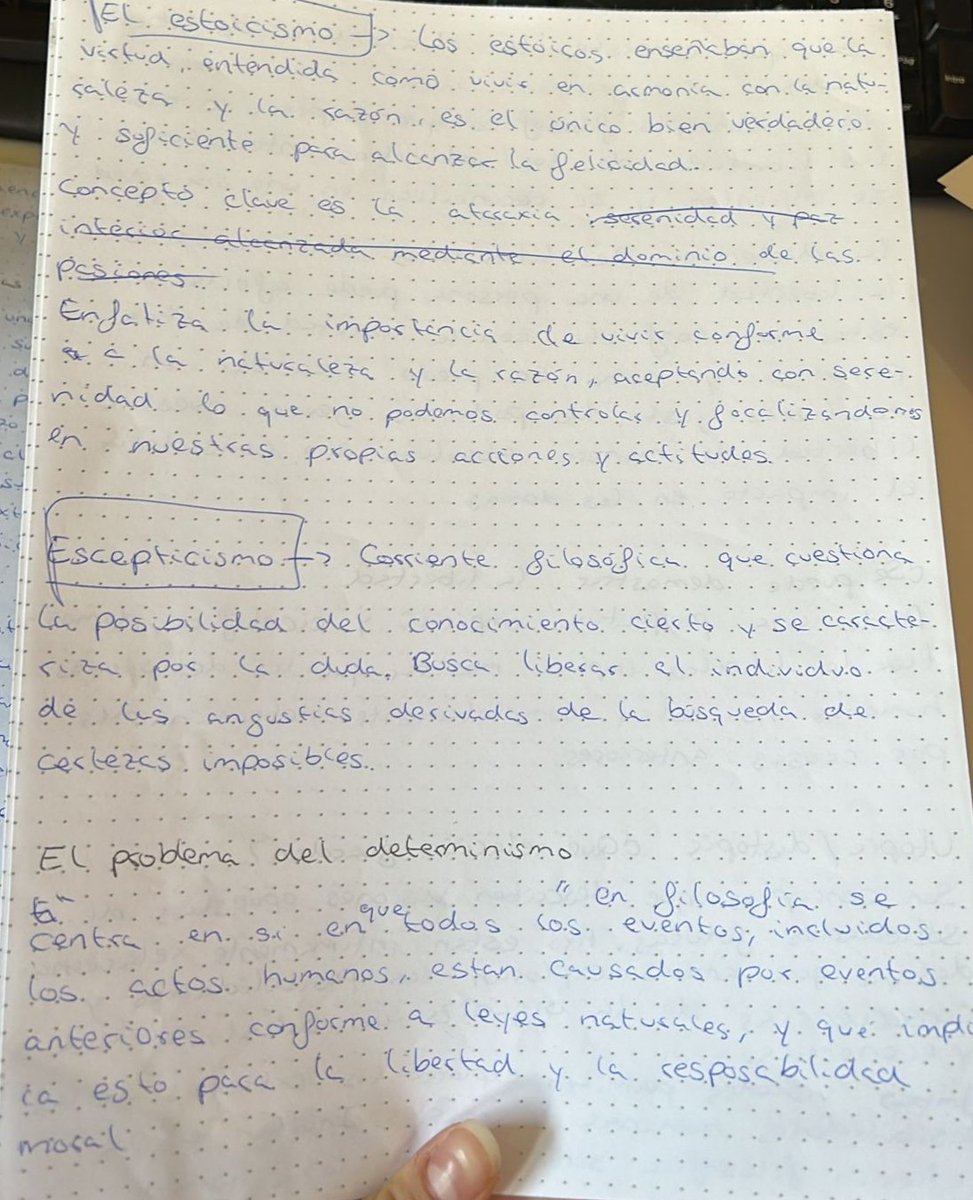 El estoicismo -> Los estoicos enseñaban que la
virtud, entendida como vivir en armonía con la natu-
raleza y la razón, es el único bien verdadero
y suficiente para alcanzar la felicidad.
Concepto clave es la ataraxia serenidad y paz
interior alcanzada mediante el dominio de las
pasiones
Enfatiza la importancia de vivir conforme
a la naturaleza y la razón, aceptando con sere-
nidad lo que no podemos controlar y focalizandonos
en nuestras propias acciones y actitudes.
Escepticismo -> Corriente filosófica que cuestiona
la posibilidad del conocimiento cierto y se caracte-
riza por la duda. Busca liberar al individuo
de las angustias derivadas de la búsqueda de
certezas imposibles.
El problema del determinismo
" " en filosofía se
centra en si en que todos los eventos, incluidos
los actos humanos, estan causados por eventos
anteriores conforme a leyes naturales, y que impli
ca esto para la libertad y la resposabilidad
moral